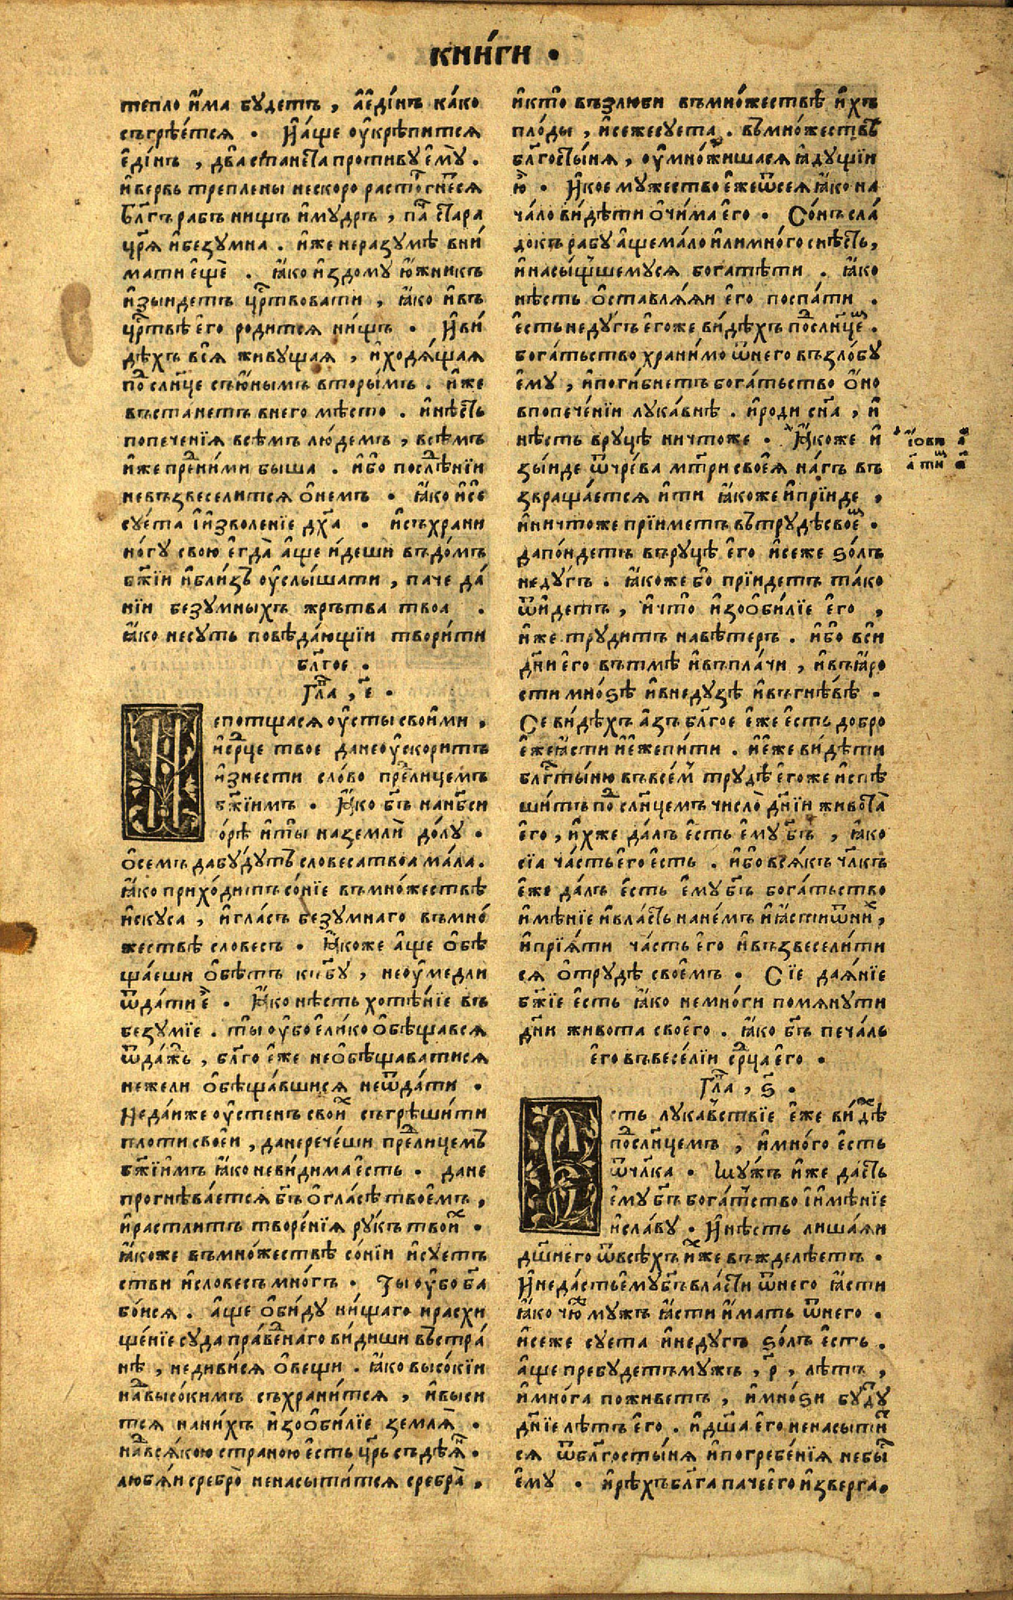 кни́ги .
тепло и҆́ма будетъ , а҆е҆ди́нъ ка́ко
съгрѣ́ется . И҆а́ще оу҆крѣпится
е҆ди́нъ , два̀ станета противу е҆мꙋ̀ .
и҆ вервь треплены нескоро растогнется
Бл҃гъ рабъ нищъ и҆ мꙋдръ , па́ че стара
цр҃ѧ и҆безꙋмна . и҆же неразꙋмѣ вни́
мати е҆щѐ . ꙗ҆́ко и҆здомꙋ ю҆́жникъ
и҆зыидетъ цр҃твовати , ꙗ҆́ко и҆въ
цр҃твѣ е҆го родится нищъ . И҆ви́
дѣхъ всѧ̀ живꙋщаѧ , и҆ходѧ́щаѧ
по́дъ слн҃це съю҆́нымъ вторы́мъ . и҆же
въстанетъ внего мѣсто . и҆нѣсть
попече́нїѧ всѣ́мъ лю́демъ , всѣ́мъ
и҆же пред̾ни́ми быша . и҆́бо послѣ́днїи
невъзвеселится ѻ҆немъ . ꙗ҆́ко и҆се́
сꙋе́та і҆ и҆зволенїе дх҃а . и҆съхрани
но́гꙋ свою е҆гда̀ а҆́ще и҆́деши въдо́мъ
бж҃їи и҆бли́зъ оу҆слы́шати , паче да́
нїи безꙋмныхъ жрътва твоа .
ꙗ҆́ко несꙋть повѣда́ющїи твори́ти
бл҃гое .
Гла , е҃ .
Непотщасѧ оу҆сты свои́ми ,
и҆ср҃це твое данеоу҆скоритъ
и҆знести сло́во пред̾лицемъ
бж҃їимъ . Ꙗ҆́ко бг҃ъ нанб҃си
го́рѣ и҆ты̀ наземлѝ до́лꙋ .
ѻ҆семъ дабꙋ́дꙋтъ словеса твоа ма́ла .
ꙗ҆́ко прихо́дитъ со́нїе въмно́жествѣ
и҆скꙋса , и҆гла́съ безꙋмнаго въмно́
жествѣ словесъ . Ꙗ҆́коже а҆́ще ѻ҆бѣ
ща́еши ѻ҆бѣ́тъ кбг҃ꙋ , неоу҆медли
ѿда́ти е҆̀ . Ꙗ҆́ко нѣсть хотѣ́нїе въ
безꙋ́мїе . ты̀ оу҆бо е҆ли́ко ѻ҆бѣща́всѧ
ѿда́жь , бл҃го е҆же неѻ҆бѣщаватисѧ
нежели ѻ҆бѣща́вшисѧ неѿда́ти .
Неда́иже оу҆стенъ свои́х съгрѣши́ти
плоти своеи , данерече́ши пред̾лицемъ
бж҃їимъ ꙗ҆́ко неви́дима е҆сть . дане
прогнѣва́етсѧ бг҃ъ ѻ҆гласѣ твое́мъ ,
и҆растлитъ творе́нїѧ рꙋкъ твои́х .
ꙗ҆́коже въмно́жествѣ со́нїи и҆сꙋетъ
стви и҆словесъ мно́гъ . Ты̀ оу҆бо бг҃а
бо́исѧ . а҆́ще ѻ҆би́дꙋ ни́щаго ирасхи
ще́нїе сꙋда пра́веднаго ви́диши въстра́
нѣ , недиви́сѧ ѻ҆вещи . ꙗ҆́ко высо́кїи
надвысо́кимъ съхрани́тсѧ , и҆выси
тсѧ нани́хъ и҆зѻ҆билїе землѧ̀ .
надвсѧ́кою страною е҆сть цр҃ь съдѣѧ̀ .
любѧ́и сребро̀ ненасыти́тсѧ сребра̀ ,
и҆кто̀ възлюби въмно́жествѣ и҆́хъ
пло́ды , и҆сежесꙋета̀ . въмно́жествѣ
бл҃госты́нѧ , оу҆мно́жишасѧ ꙗ҆дꙋщїи
ю҆̀ . И҆кое мꙋжество е҆жеѿсеѧ ꙗ҆́ко на
ча́ло ви́дѣти ѻ҆чи́ма е҆го . Со́нъ сла́
докъ рабꙋ а҆́щема́ло и҆лимно́го снѣсть ,
и҆насы́щшемꙋсѧ богатѣти . ꙗ҆́ко
нѣсть ѻ҆ставлѧ́ѧи е҆го поспа́ти .
е҆́сть недꙋгъ е҆гоже ви́дѣхъ подъслн҃цем .
бога́тьство храни́мо ѿнего възло́бꙋ
е҆мꙋ , и҆поги́бнетъ бога́тьство ѻ҆но
впопече́нїи лꙋка́внѣ . и҆роди сн҃а , и҆
нѣ́сть врꙋцѣ ничтоже . Ꙗ҆́коже и҆
зы́иде ѿчре́ва мт҃ри своеѧ̀ на́гъ въ
звраща́етсѧ и҆ти ꙗ҆́коже и҆прїи́де ,
и҆ничто́же прїиметъ вътрꙋдѣ свое́м .
дапо́идетъ врꙋцѣ е҆го и҆сеже ѕо́лъ
недꙋ́гъ . ꙗ҆́коже бо прїидетъ та́ко
ѿи҆детъ , и҆что̀ и҆зоѻ҆би́лїе е҆го ,
и҆же трꙋдитъ навѣтеръ . и҆бо вси̇
дн҃и е҆го вътмѣ и҆въпла́чи , и҆въꙗ҆ро
сти мно́ѕѣ и҆внедꙋзѣ и҆въгнѣвѣ .
Се ви́дѣхъ а҆́зъ бл҃гое е҆же е҆́сть добро
е҆жеꙗ҆сти и҆е҆жепи́ти . и҆е҆же ви́дѣти
бл҃гты́ню въвсе́мъ трꙋдѣ е҆гоже и҆спѣ
ши́тъ подъ слн҃цемъ число̀ дн҃їи живота̀
е҆го , и҆́хже да́лъ е҆сть е҆мꙋ бг҃ъ , ꙗ҆́ко
сїа ча́сть е҆го е҆сть . и҆́бо всѧ́къ чл҃къ
е҆же да́лъ е҆сть е҆мꙋ бг҃ъ бога́тьство
и҆мѣнїе и҆вла́сть нане́мъ и҆ꙗ҆сти ѿни́х ,
и҆прїѧ́ти ча́сть е҆го и҆възвесели́ти
сѧ ѻ҆трꙋдѣ свое́мъ . Сїе даѧ́нїе
бж҃їе е҆сть ꙗ҆́ко немно́ги помѧнꙋти
дн҃и живота свое́го . ꙗ҆́ко бг҃ъ печа́ль
е҆го въвесе́лїи ср҃ца е҆го .
Гла , ѕ҃ .
Есть лꙋка́вствїе е҆же ви́дѣ
подъслн҃цемъ , и҆мно́го е҆сть
ѿчл҃ка . Мꙋ́жъ и҆же да́сть
е҆мꙋ бг҃ъ бога́тство і҆ и҆мѣ́нїе
и҆сла́вꙋ . И҆нѣсть лиша́ѧи
дш҃и него ѿвсѣхъ и҆́хже въжделѣетъ .
И҆неда́сть е҆мꙋ бг҃ъ вла́сти ѿнего ꙗ҆сти
ꙗ҆́ко чю́ж мꙋжъ ꙗ҆сти и҆́мать ѿнего .
и҆сеже сꙋета и҆недꙋгъ ѕо́лъ е҆сть .
а҆́ще пребꙋдетъ мꙋжъ , р҃ , лѣтъ ,
и҆мно́га поживетъ , и҆мно́ѕи бꙋ́дꙋ
дн҃їе лѣтъ е҆го . и҆дш҃а е҆го ненасыти́т
сѧ ѿбл҃госты́нѧ и҆погребе́нїѧ небы̀
е҆мꙋ . и҆рѣхъ бл҃га паче е҆го и҆зверга .
і҆ови а҃